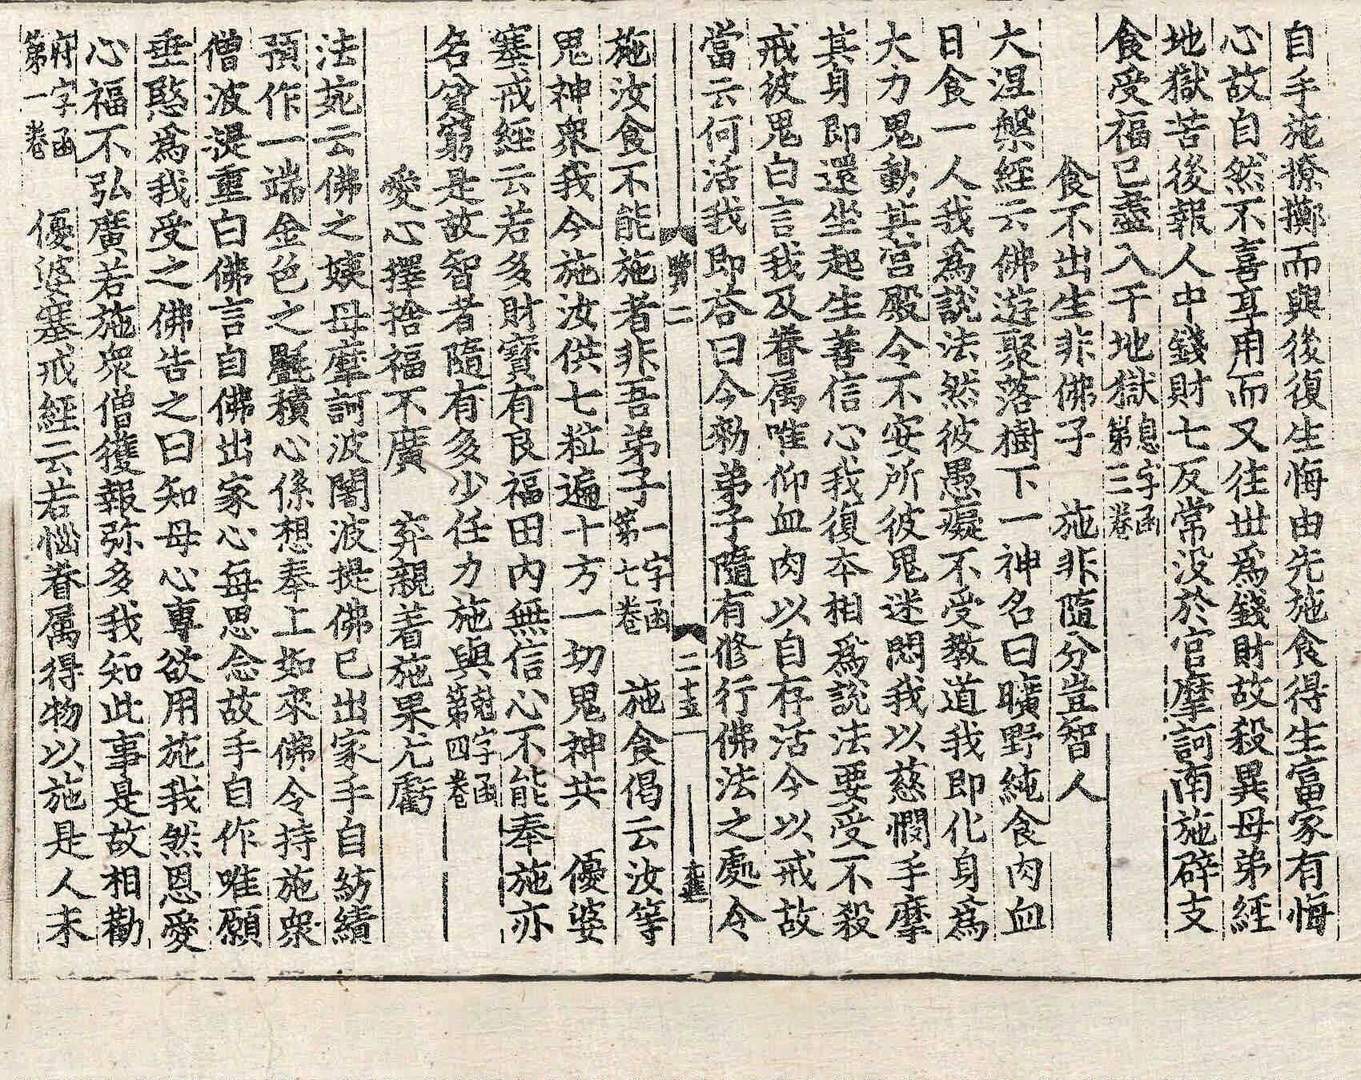 自手施撩擲而與後復生悔由先施食得生富家有悔
心故自然不喜享用而又往世爲錢財故殺異母弟經
地獄苦後報人中錢財七反常没於官摩訶南施辟支
食受福已盡入于地獄息字函第三卷
食不出生非佛子　施非隨分豈智人
大涅槃經云佛遊聚落樹下一神名曰曠野純食肉血
日食一人我爲說法然彼愚癡不受教道我即化身爲
大力鬼動其宮殿令不安所彼鬼迷悶我以慈憫手摩
其身即還坐起生善信心我復本相爲說法要受不殺
戒彼鬼白言我及眷属唯仰血肉以自存活今以戒故
當云何活我即荅曰今勑弟子隨有修行佛法之處令
二　二十五
施汝食不能施者非吾弟子一字函第七卷　施食偈云汝等
鬼神衆我今施汝供七粒遍十方一切鬼神共　優婆
塞戒經云若多財寳有良福田內無信心不能奉施亦
名貧窮是故智者隨有多少任力施與尅字函第四卷
愛心擇捨福不廣　弃親着施果尤虧
法苑云佛之姨母摩訶波闍波提佛已出家手自紡績
預作一端金色之㲲積心係想奉上如來佛令持施衆
僧波提重白佛言自佛出家心每思念故手自作唯願
垂愍爲我受之佛告之曰知母心專欲用施我然恩愛
心福不弘廣若施衆僧獲報弥多我知此事是故相勸
府字函第一卷　優婆塞戒經云若惱眷属得物以施是人未